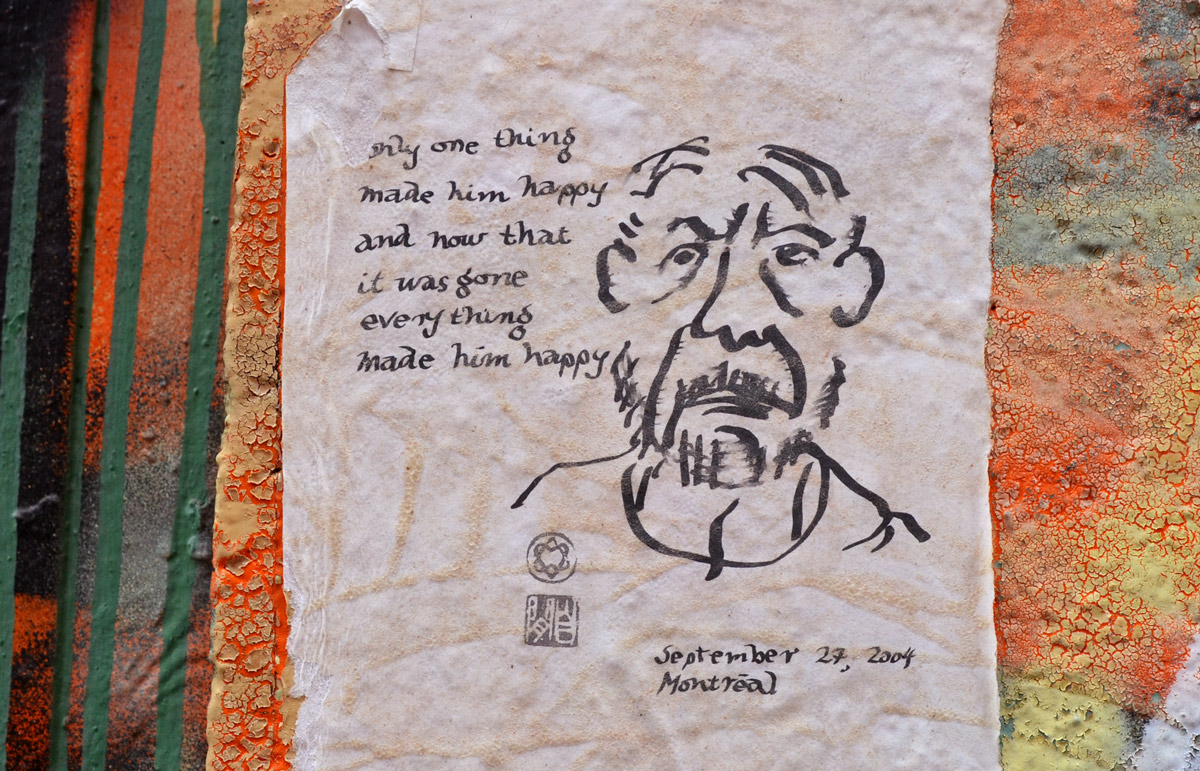 only one thing
made him happy
and now that
it was gone
everything
made him happy
September 27, 2004
Montréal